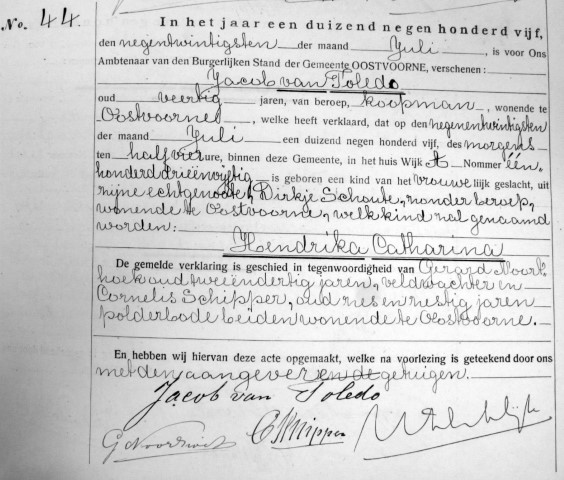 No. 44.
In het jaar een duizend negen honderd vijf,
den negentwintigsten der maand Juli, is voor Ons
Ambtenaar van den Burgerlijken Stand der Gemeente OOSTVOORNE, verschenen:
Jacob van Toledo
oud veertig jaren, van beroep, koopman, wonende te
Oostvoorne, welke heeft verklaard, dat op den negenentwintigsten
der maand Juli een duizend negen honderd vijf, des morgens
ten half vier ure, binnen deze Gemeente, in het huis Wijk A Nommer één
honderd drieënvijftig is geboren een kind van het vrouwelijk geslacht, uit
zijne echtgenoote, Dirkje Schoute, zonder beroep,
wonende te Oostvoorne, welk kind zal genaamd
worden:
Hendrika Catharina
De gemelde verklaring is geschied in tegenwoordigheid van Gerard Noort
hoek oud tweeëndertig jaren, veldwachter en
Cornelis Schipper, oud zes en zestig jaren
polderbode beiden wonende te Oostvoorne.
En hebben wij hiervan deze acte opgemaakt, welke na voorlezing is geteekend door ons
met den aangever en de getuigen.
Jacob van Toledo
C Schipper